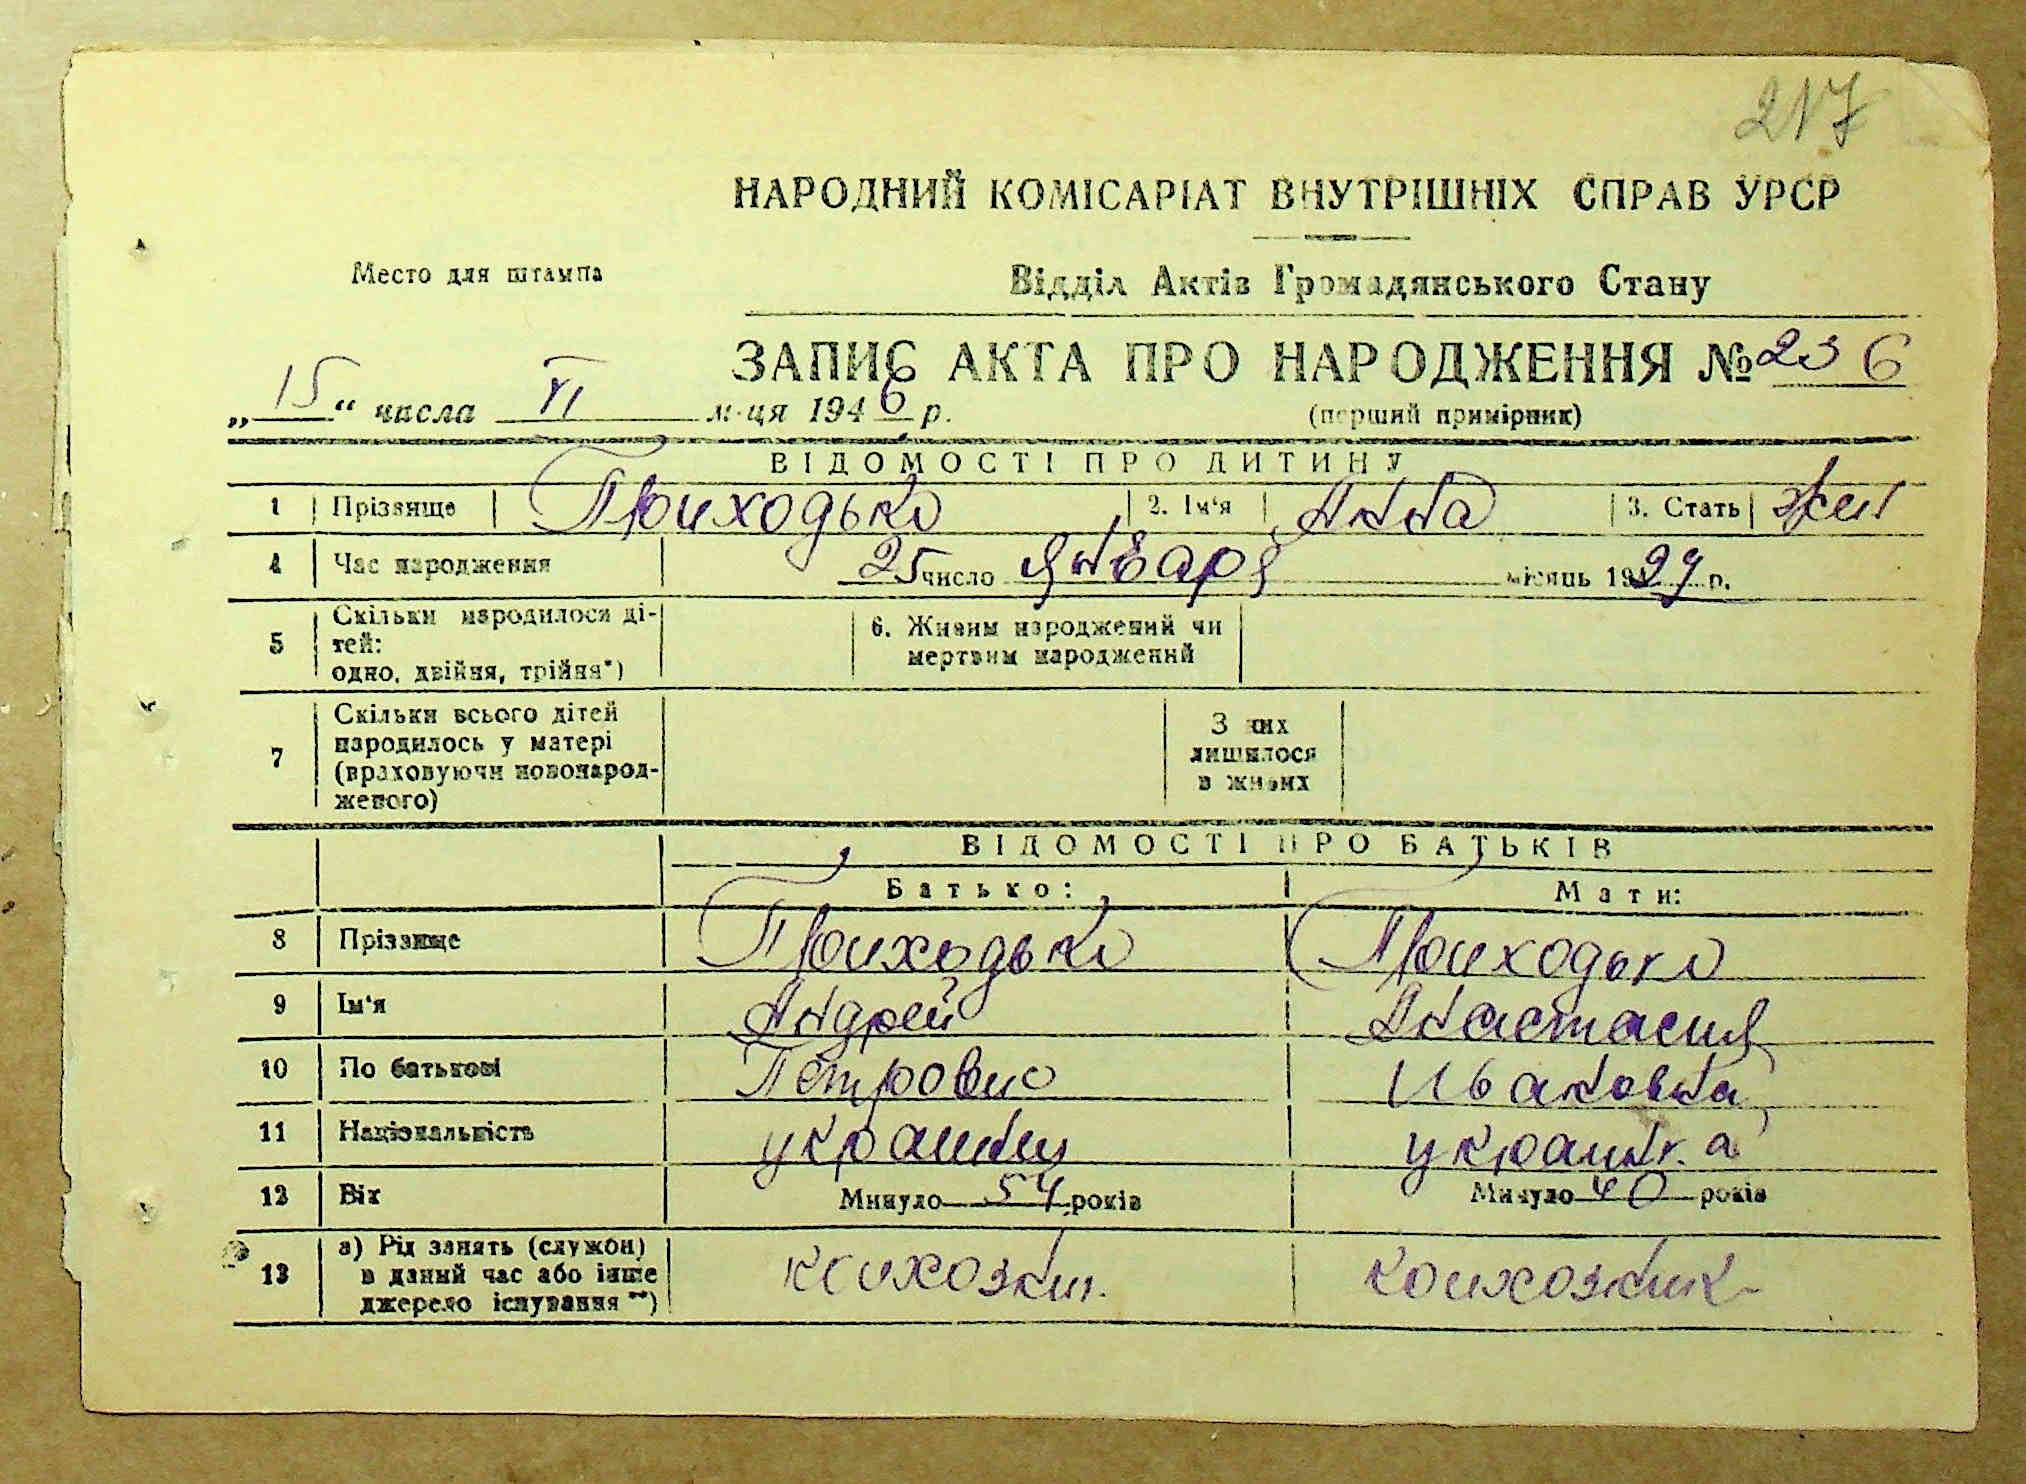 217
НАРОДНИЙ КОМІСАРІАТ ВНУТРІШНІХ СПРАВ УРСР
Место для штампа
Відділ Актів Громадянського Стану
ЗАПИС АКТА ПРО НАРОДЖЕННЯ № 236
„15“ числа VI м-ця 1946 р.
(перший примірник)
ВІДОМОСТІ ПРО ДИТИНУ
1 Прізвище Приходько 2. Ім'я Анна 3. Стать жен
4 Час народження 25 число января місяць 1929 р.
5 Скільки народилося ді-
тей:
одно, двійня, трійня*)
6. Живим народжений чи
мертвим народжений
7 Скільки всього дітей
народилось у матері
(враховуючи новонарод-
женого)
З них
лишилося
в живих
ВІДОМОСТІ ПРО БАТЬКІВ
Батько: Мати:
8 Прізвище Приходько Приходько
9 Ім'я Андрей Анастасия
10 По батькові Петрович Ивановна
11 Національність украинц украинка
12 Вік Минуло 54 років Минуло 40 років
13 а) Рід занять (служби)
в даний час або інше
джерело існування **)
колхозни. колхозник